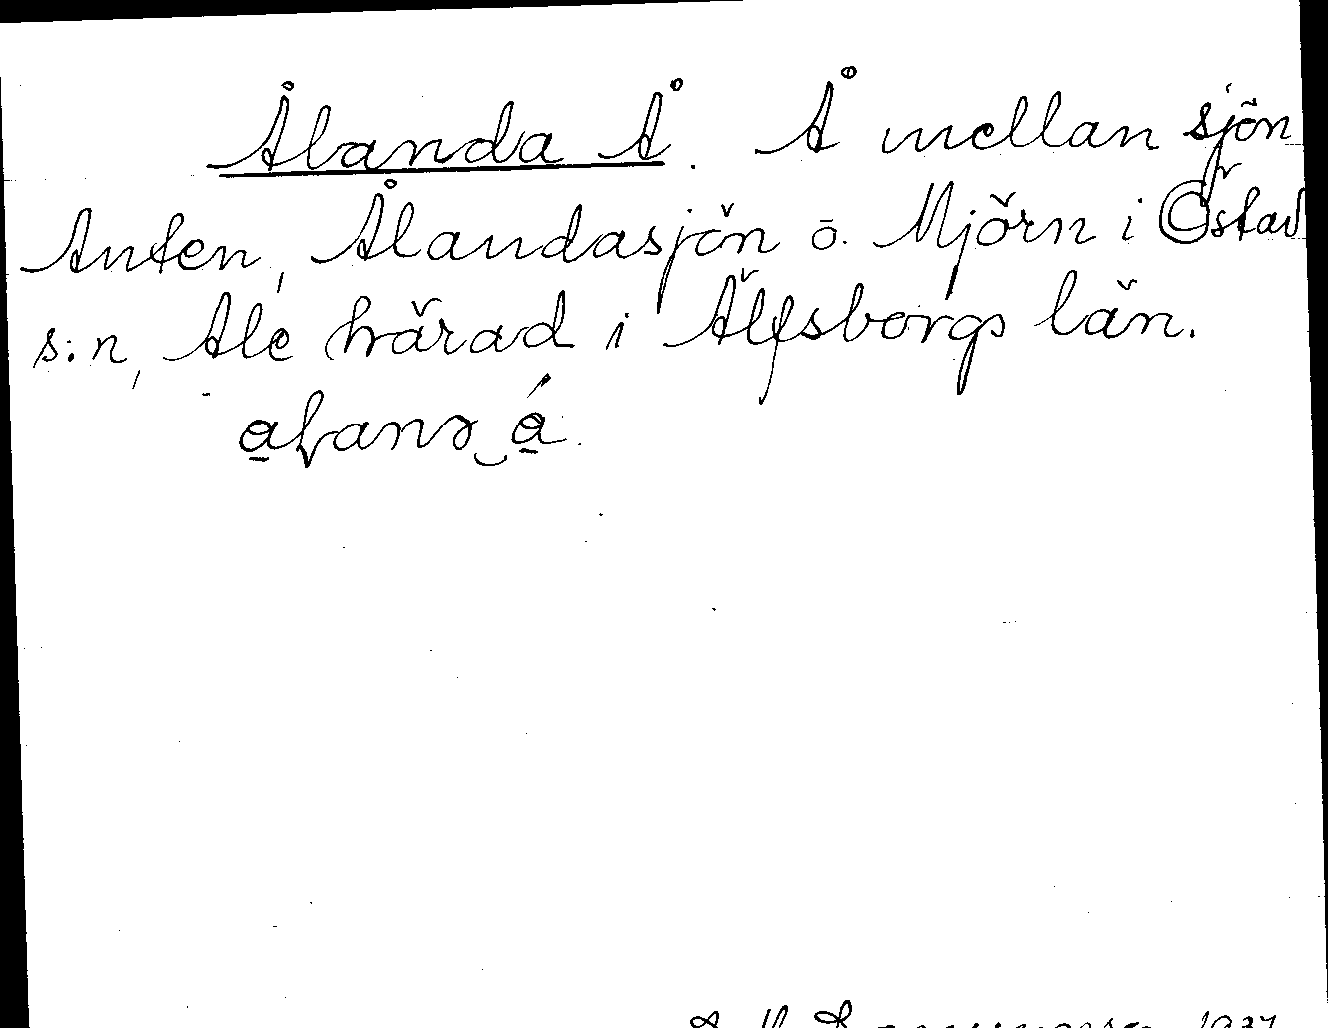 Ålanda Å. Å mellan sjön
Anten, Ålandasjön o. Mjörn i Östad
s:n, Ale härad i Älfsborgs län.
1937